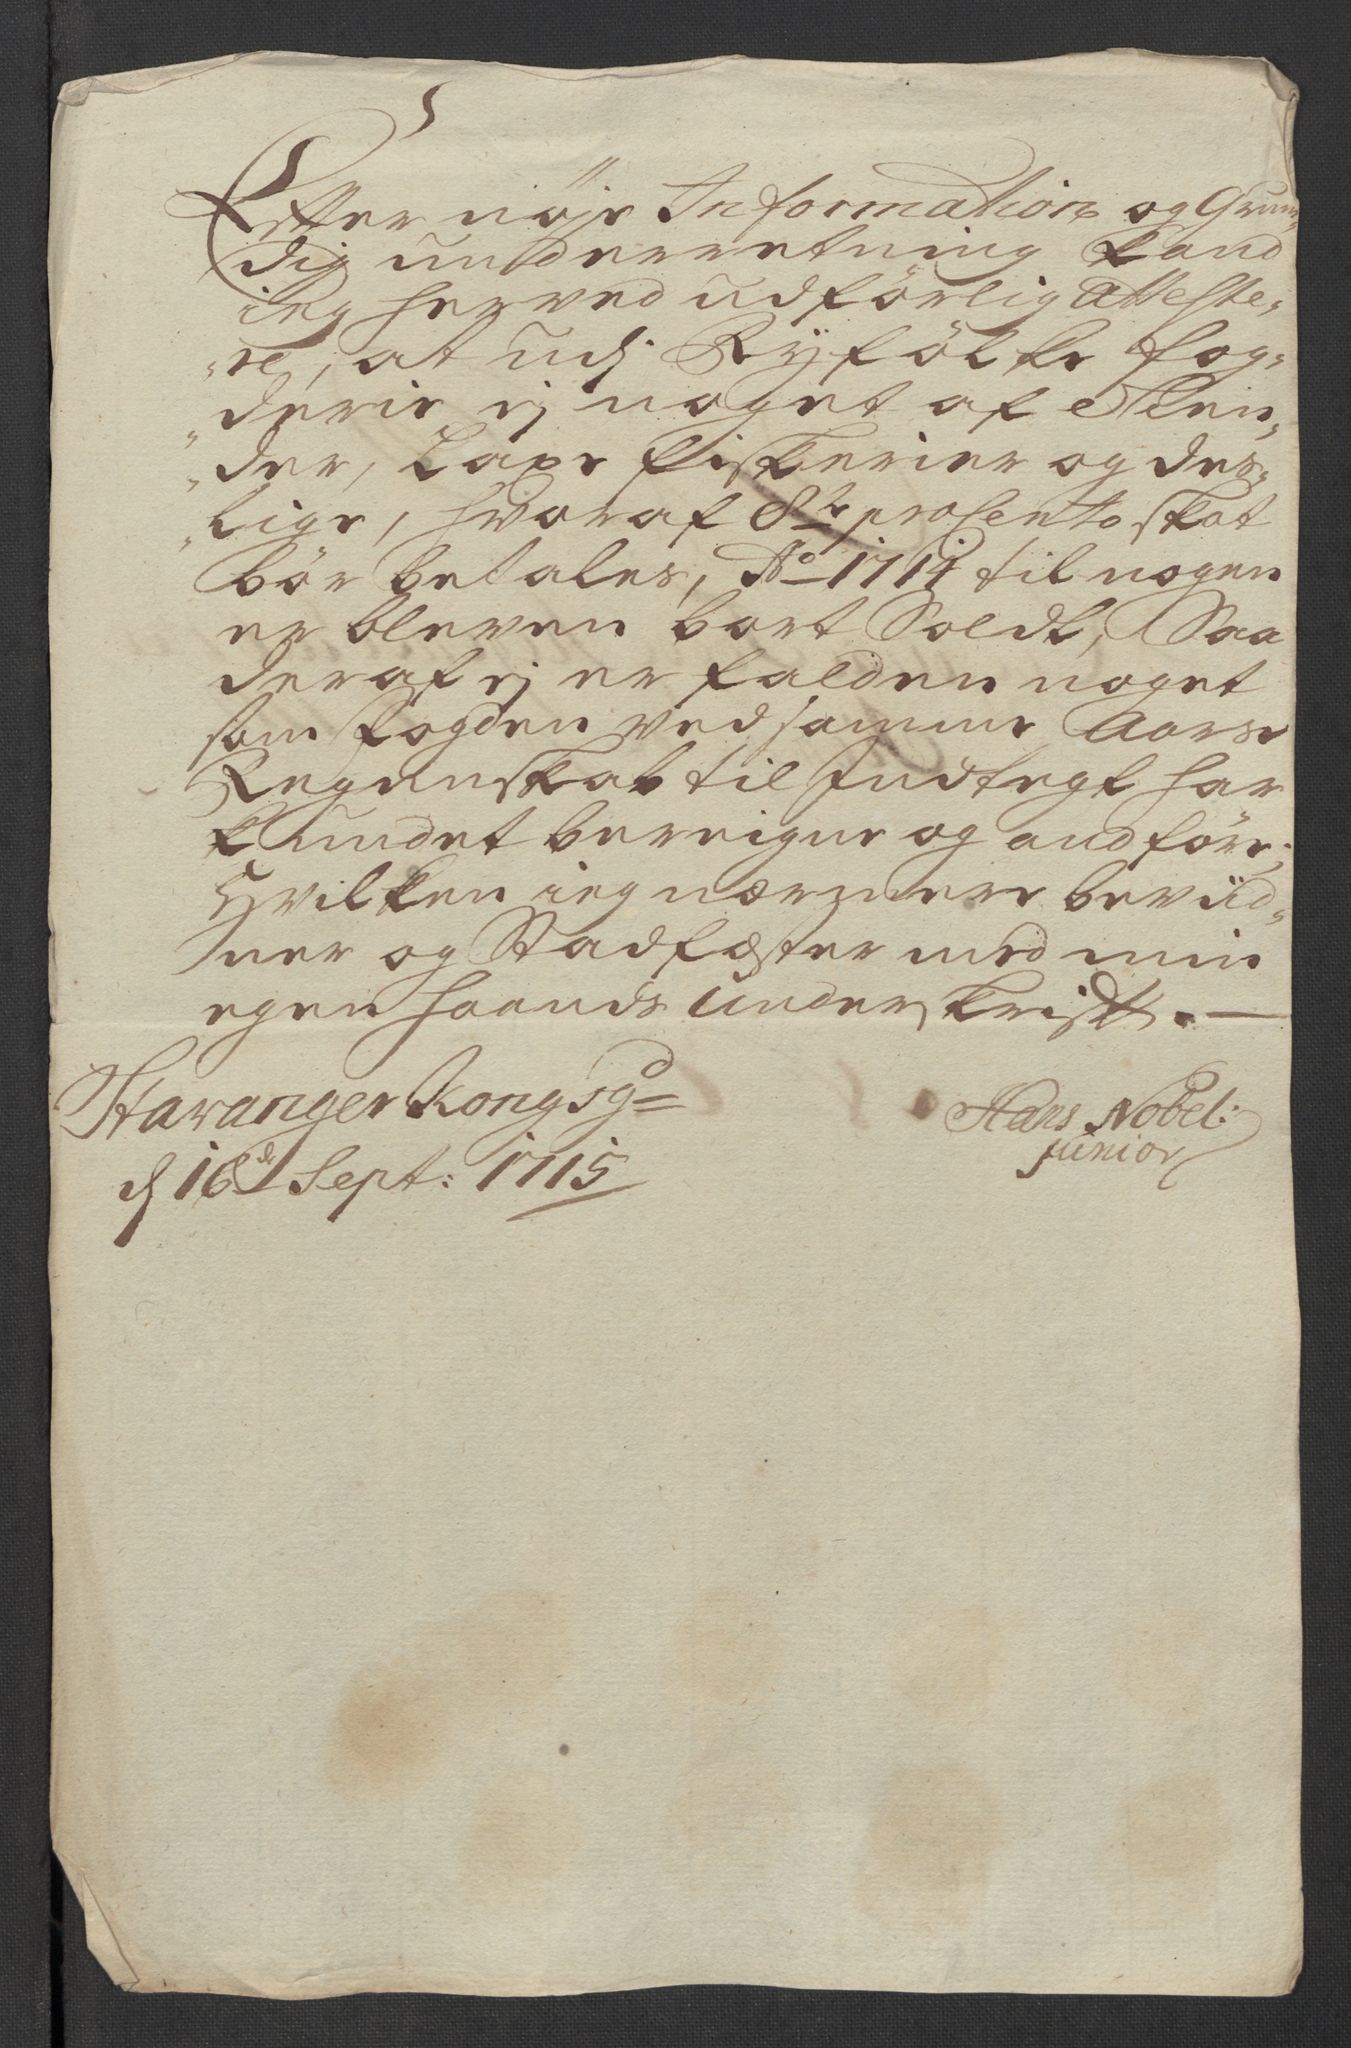 Efter nöje Information og Grun-
dig underretning kand
ieg herved udförlig Atteste-
re, at udj Ryfölke fog-
derie ej noget af Elen-
der, Laxe fiskerier og des-
lige, hvoraf 8te procento skat
bör betales, Ao 1714 til nogen
er bleven bort Soldt, Saa
deraf ej er falden noget
som fogden ved samme Aars
Regenskab til Indtegt har
kundet bereigne og andföre;
Hvilken ieg nærmere bevid-
ner og Stadfæster med min
egen haands Underskrift.
Stavanger Kongsgd
d 16de Sept: 1715
Hans Nobel:
junior